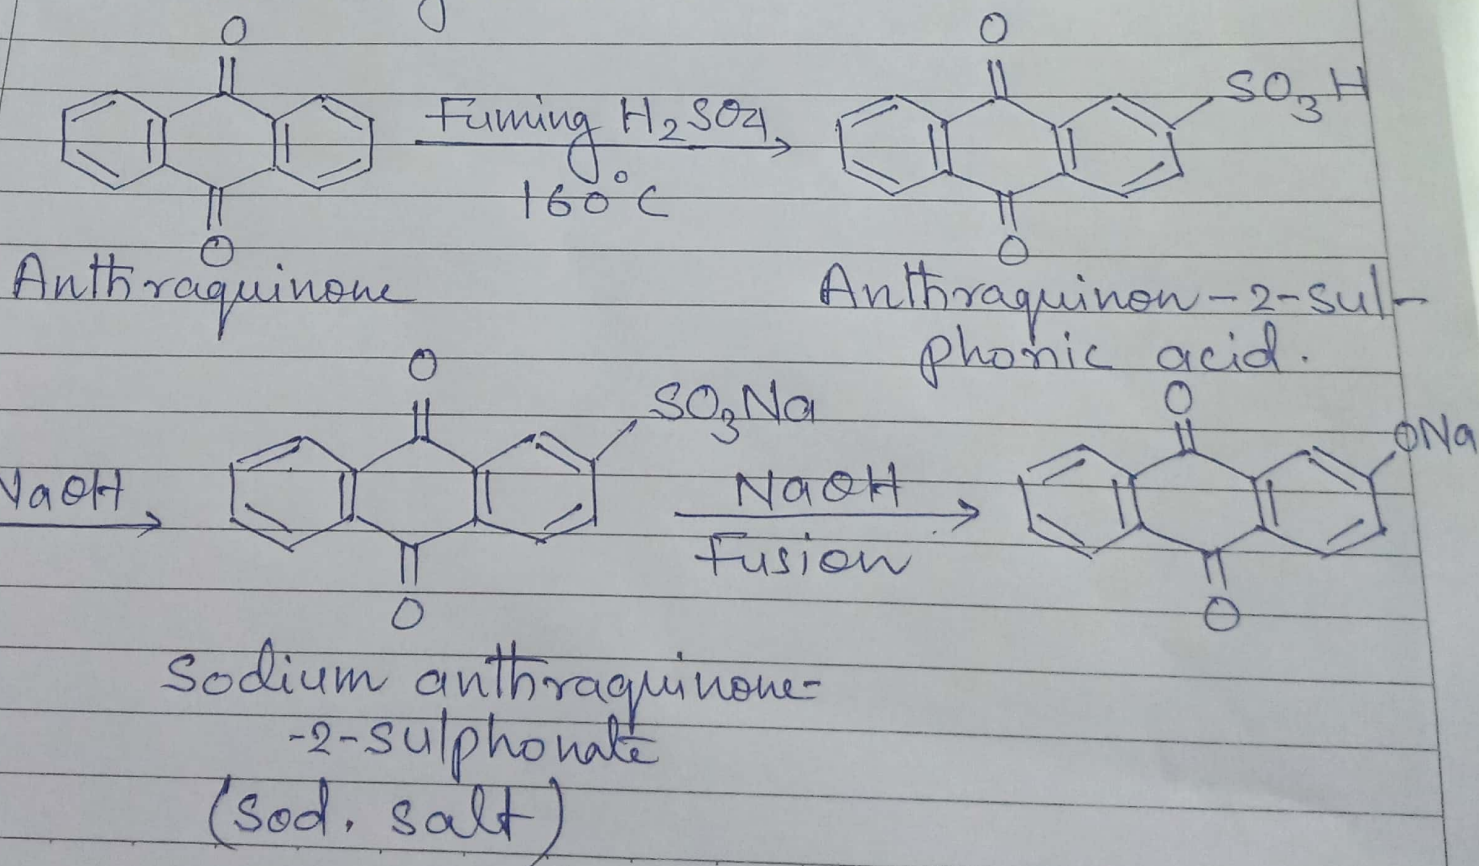 O O
SO₃H
Fuming H₂SO₄
160°C
O O
Anthraquinone Anthraquinon-2-sul-
phonic acid.
O O
SO₃Na ONa
NaOH NaOH
Fusion
O O
Sodium anthraquinone-
-2-sulphonate
(sod. salt)